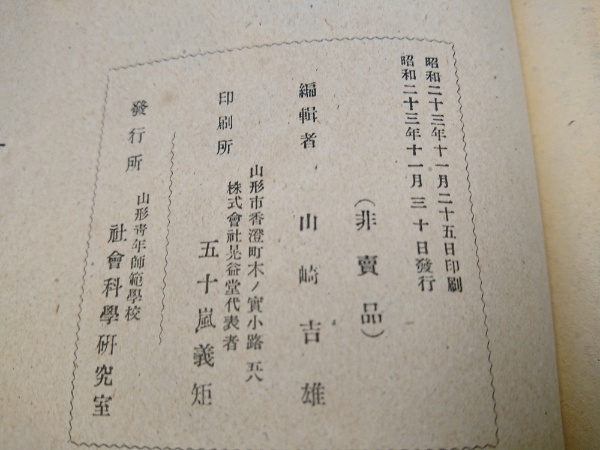 昭和二十三年十一月二十五日印刷
昭和二十三年十一月三十日發行
（非賣品）
編輯者　山崎吉雄
山形市香澄町木ノ實小路五八
株式會社晃益堂代表者
印刷所　五十嵐義矩
山形靑年師範學校
發行所　社會科學硏究室